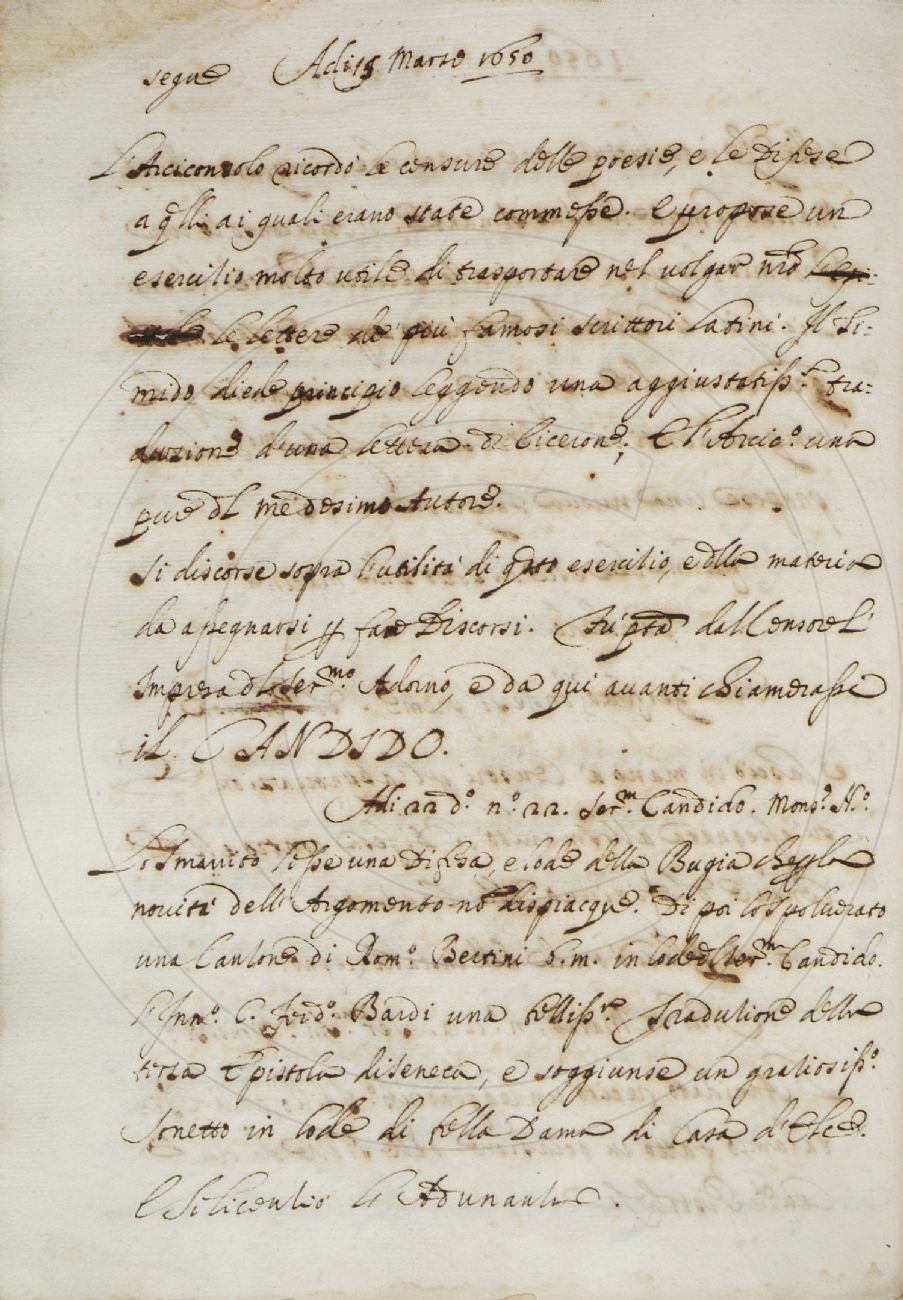 segue Adi 15 Marzo 1650
L'Arciconsolo ricordò le censure delle poesie, e le Difese
a q.lli ai quali erano state commesse. E propose un
esercitio molto utile di trasportare nel volgar nro
le lettere de' più famosi scrittori latini. Il Ti-
mido diede principio leggendo una aggiustatiss.a tra-
duzione d'una lettera di Cicerone; E l'Arcic.o una
pure dl medesimo Autore.
Si discorse sopra l'utilità di qsto esercitio, e dlla materia
da assegnarsi p fare Discorsi. Fu pta dal Censore l'
Impresa dl Ser.mo Adorno, e da qui avanti chiamerasse
il CANDIDO.
Adi 22 d.o n.o 22. Ser.m Candido. Mons.r N.o
Lo Smarrito lesse una Difesa, e lode della Bugia che p la
novità dell'Argomento nō dispiacque. Di poi lo Spolverato
una Canzone di Rom.o Bertini b.m. in lode dl Ser.m Candido.
l'Inn.o C. Ferd.o Bardi una belliss.a Traduzione della
terza Epistola di Seneca, e soggiunse un gratiosiss.o
Sonetto in lode di bella Dama di Casa d'Este.
E si licentiò l'Adunanza.